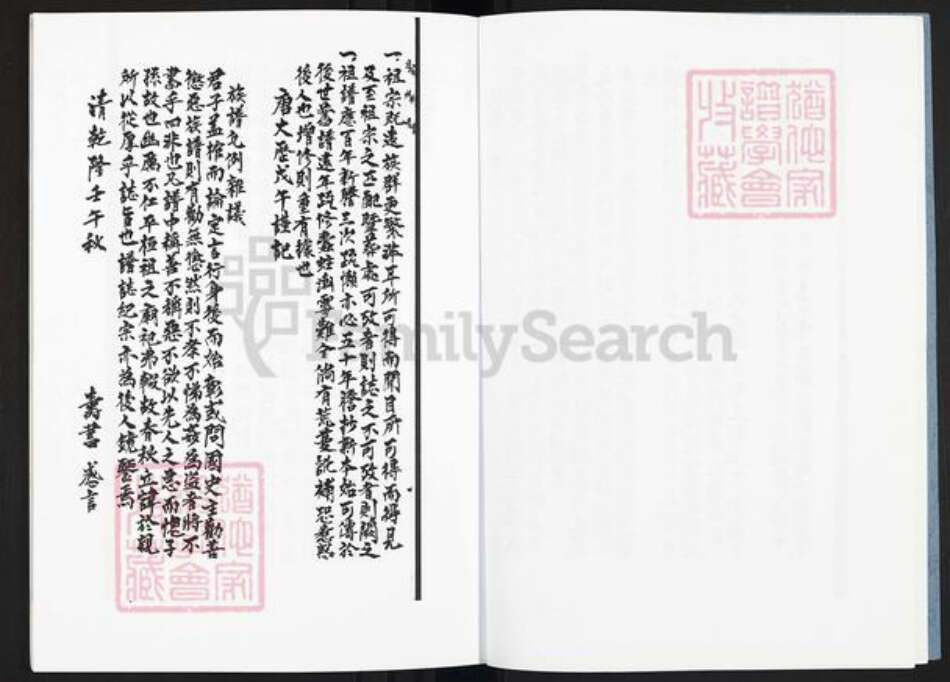 一祖宗既遠族群更繁非耳所可得而聞目所可得而得見
及至祖宗之匹配暨葬處可攷者則誌之不可攷者則闕之
一祖譜應百年新謄三次疏懶亦必五十年謄抄新本始可傳於
後世舊譜遠年疏修蠹蛀
後人也增修則重有據也
唐大歷戊午謹記
族譜凡例雜議
君子蓋棺而論定言行身後而始彰或問國史主勸善
懲惡族譜則有勸無懲然則不孝不悌為姦為盜者將不
書乎曰非也凡譜中稱善不稱惡不欲以先人之惡而愧子
孫故也幽厲不仁平桓祖之廟祀弗輟故春秋立諱於親
所以從厚乎誌旨也譜誌紀宗亦為後人鏡鑒焉
清乾隆壬午秋
壽書 感言
猶他家
譜學會
收藏
猶他家
學會
收藏
FamilySearch